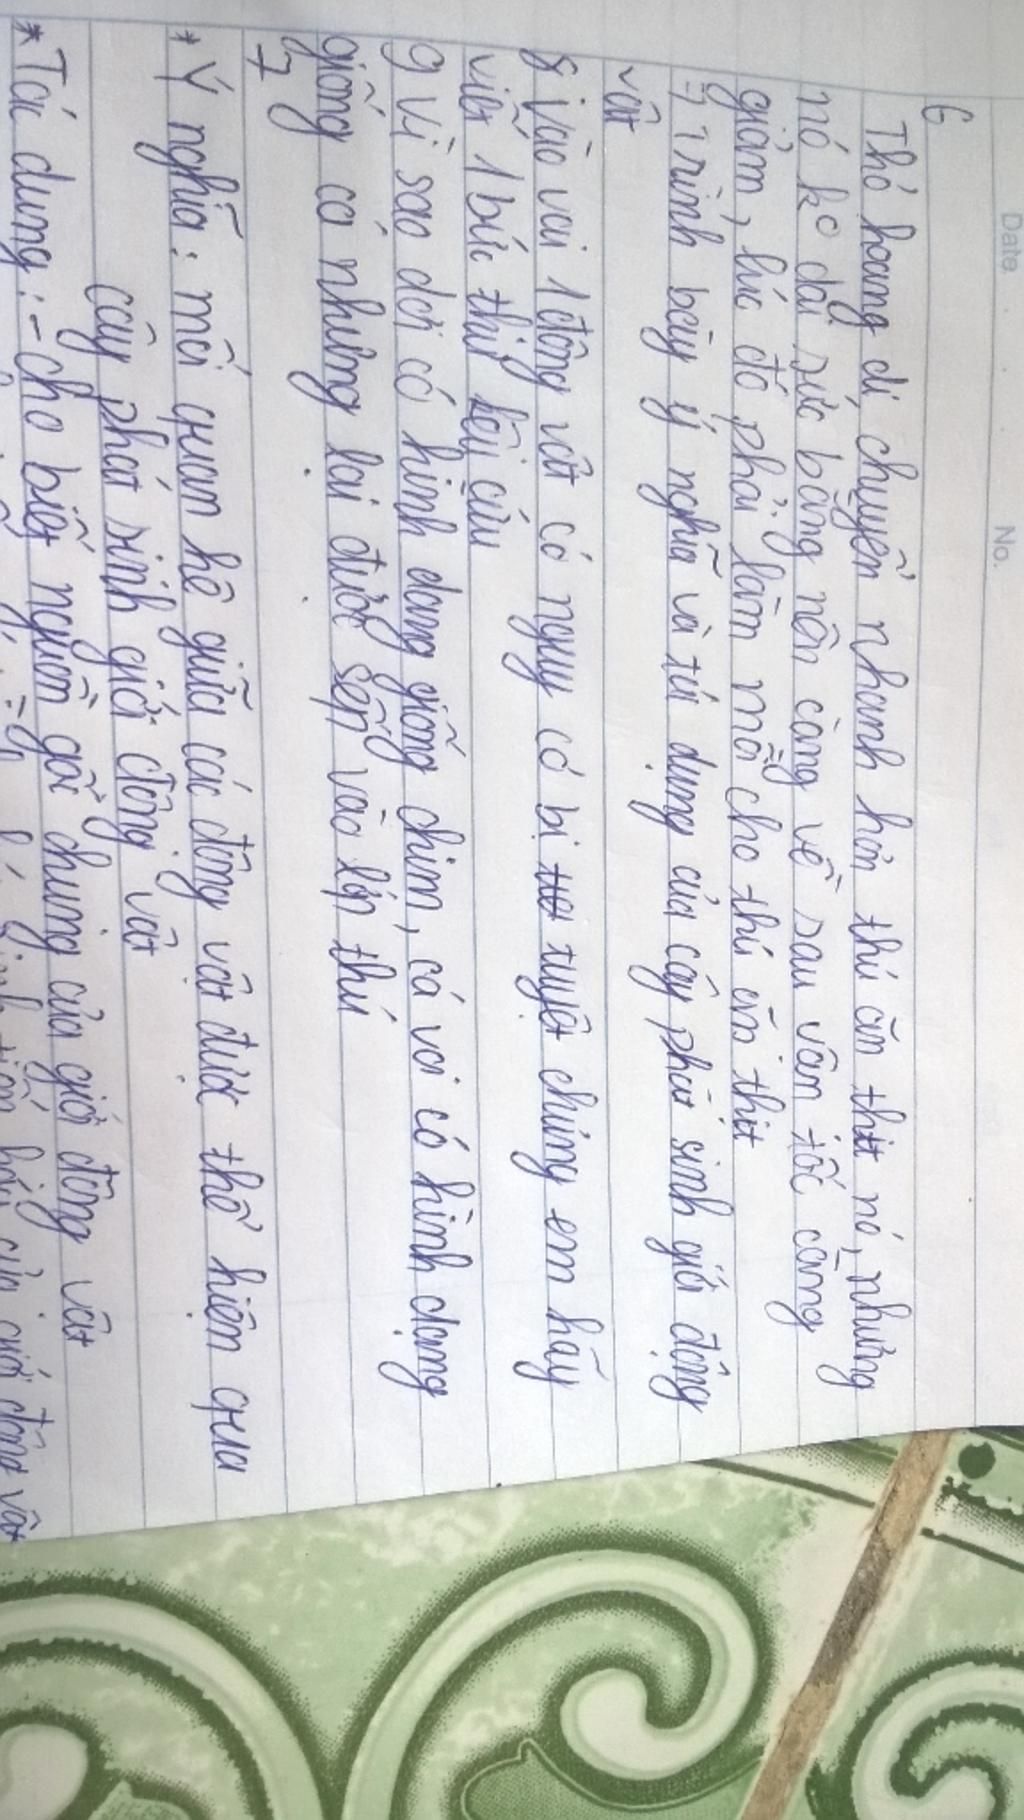 Date
No.
6
Thỏ hoang di chuyển nhanh hơn thú ăn thịt nó, nhưng
nó k° dai sức bằng nên càng về sau vận tốc càng
giảm, lúc đó phải làm mồi cho thú ăn thịt
7 Trình bày ý nghĩa và tác dụng của cây phát sinh giới động
vật
8 Vào vai 1 động vật có nguy cơ bị tuyệt chủng em hãy
viết 1 bức thư kêu cứu
9 Vì sao dơi có hình dạng giống chim, cá voi có hình dạng
giống cá nhưng lại được sếp vào lớp thú
7
* Ý nghĩa: mối quan hệ giữa các động vật được thể hiện qua
cây phát sinh giới động vật
* Tác dụng: - cho biết nguồn gốc chung của giới động vật
giới động vật